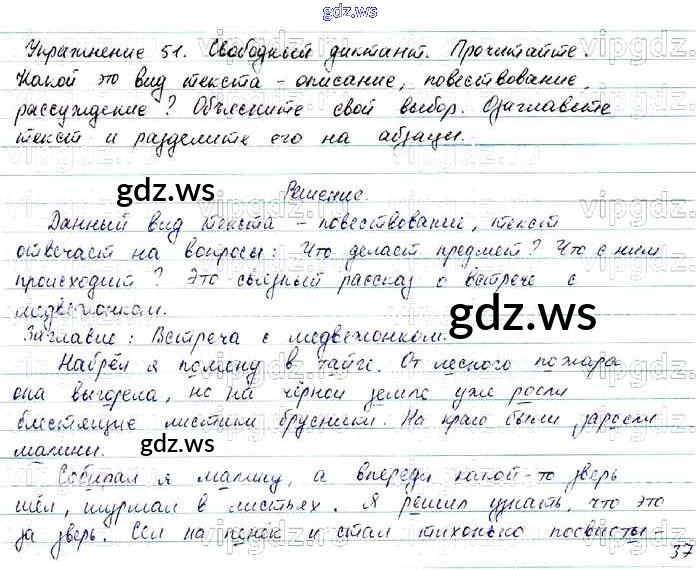 gdz.ws
Упражнение 51. Свободный диктант. Прочитайте.
Какой это вид текста - описание, повествование,
рассуждение? Объясните свой выбор. Озаглавьте
текст и разделите его на абзацы.
gdz.ws
Решение.
Данный вид текста - повествование, текст
отвечает на вопросы: Что делает предмет? Что с ним
происходит? Это связный рассказ о встрече с
медвежонком.
gdz.ws
Заглавие: Встреча с медвежонком.
Набрёл я поляну в тайге. От лесного пожара
она выгорела, но на чёрной земле уже росли
блестящие листики брусники. На краю были заросли
малины.
gdz.ws
Собирал я малину, а впереди какой-то зверь
шёл, шуршал в листьях. Я решил узнать, что это
за зверь. Сел на пенёк и стал тихонько посвисты-
gdz.ws
37